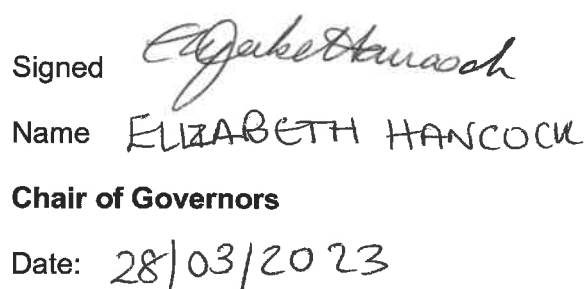 Signed Elizabeth Hancock
Name ELIZABETH HANCOCK
Chair of Governors
Date: 28/03/2023